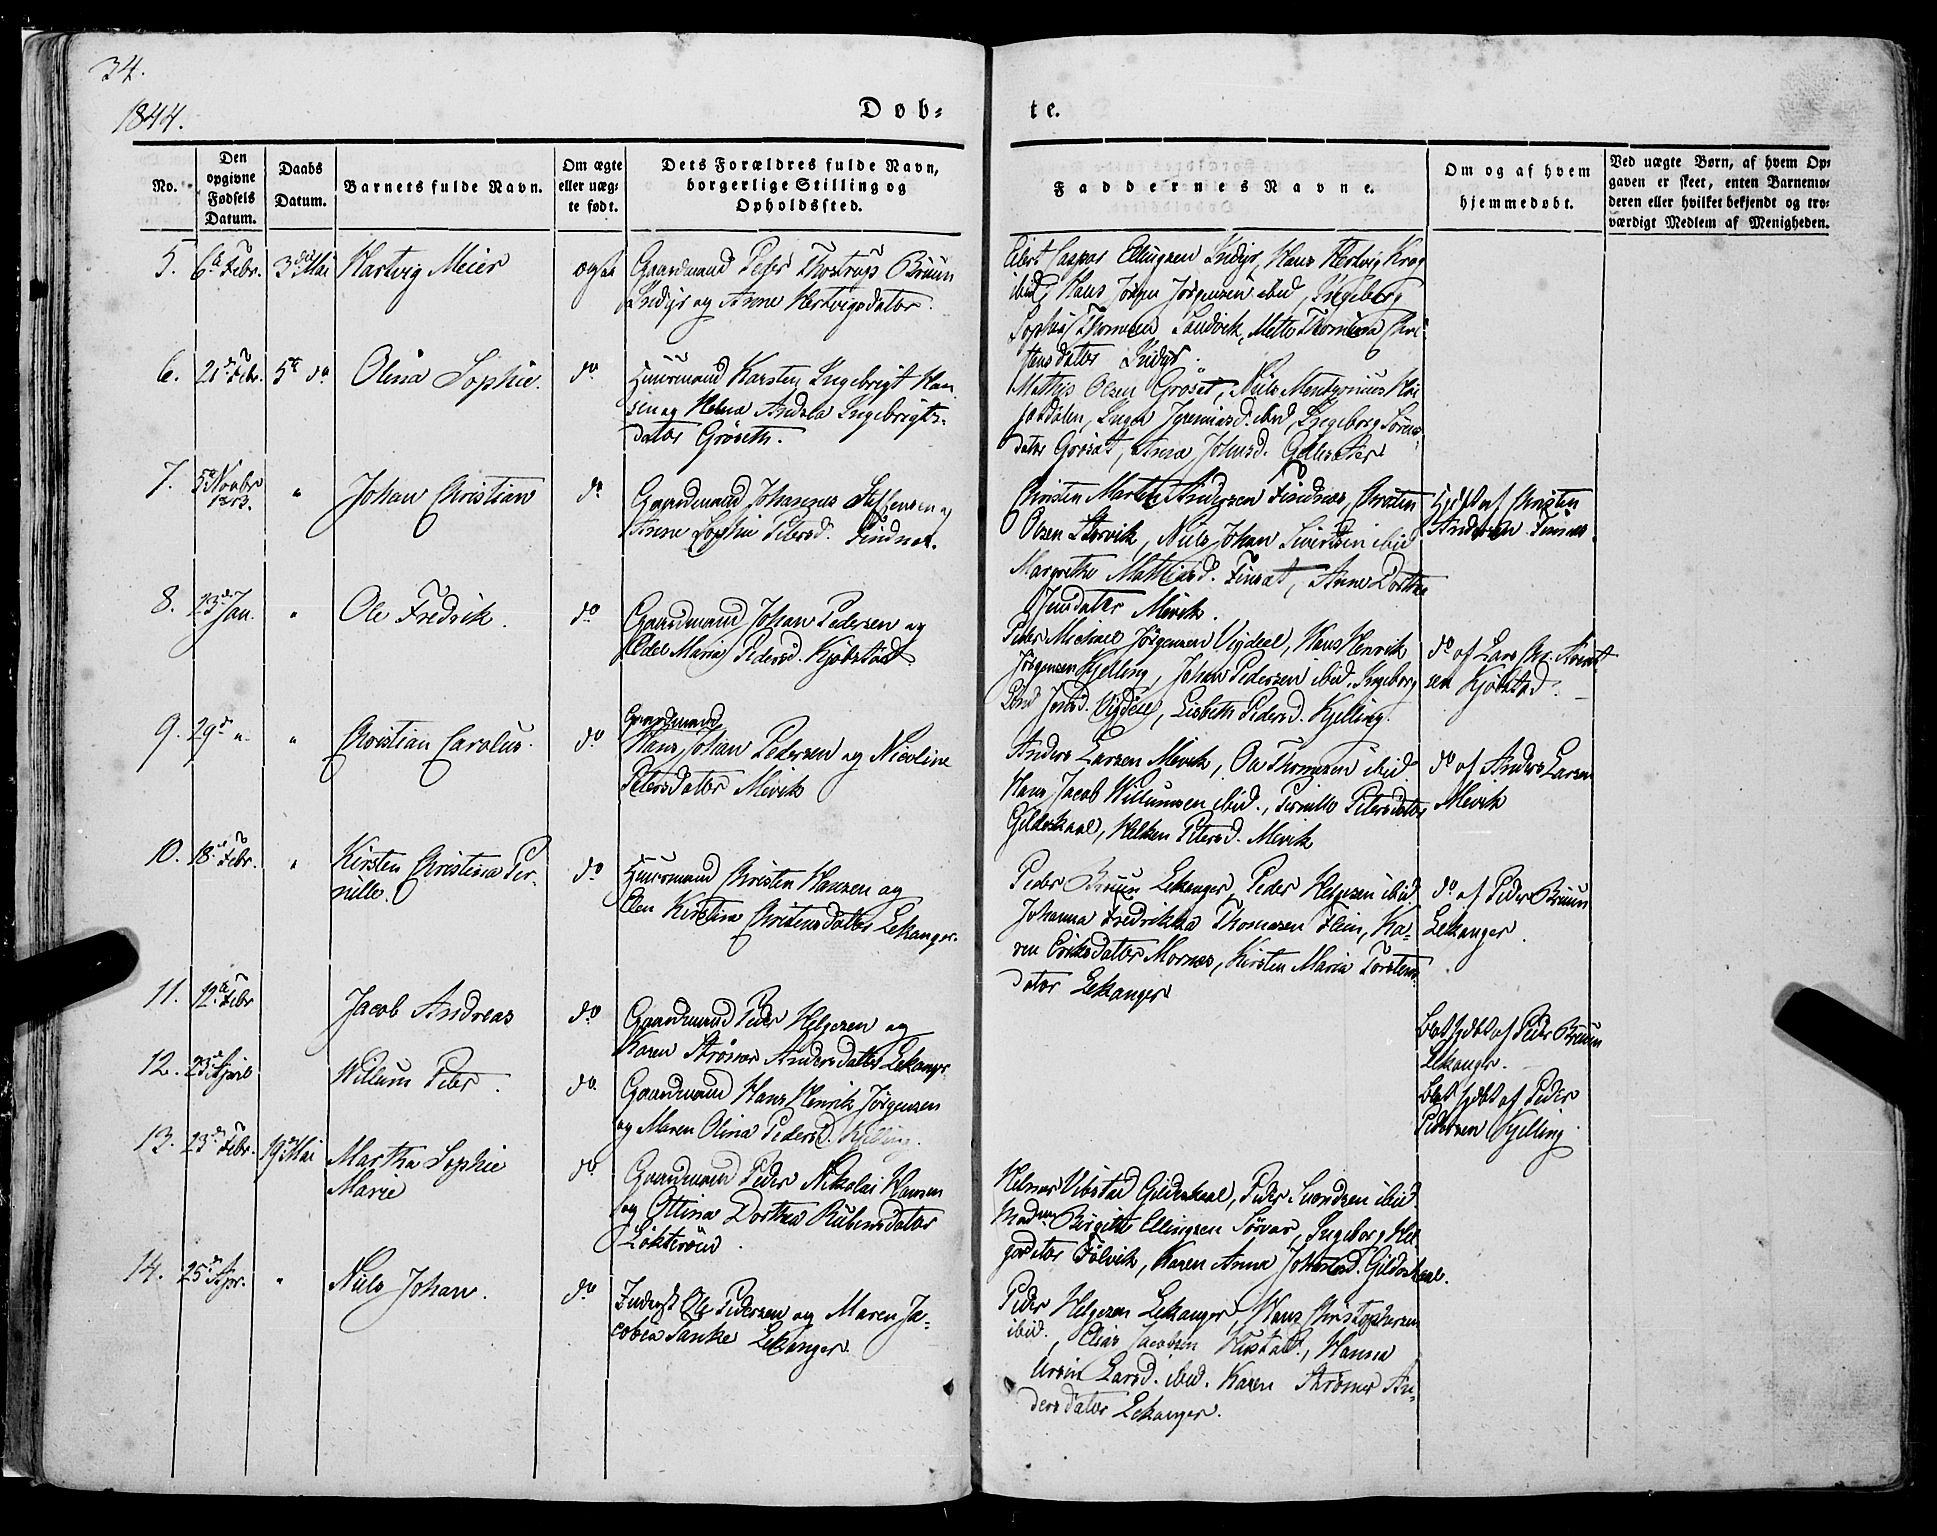 34.
1844.
Døb-
te.
No.
Den opgivne Fødsels Datum.
Daabs Datum.
Barnets fulde Navn.
Om ægte eller uæg-te født.
Dets Forældres fulde Navn, borgerlige Stilling og Opholdssted.
Faddernes Navne.
Om og af hvem hjemmedøbt.
Ved uægte Børn, af hvem Op-
gaven er skeet, enten Barnemo-
deren eller hvilket bekjendt og tro-
værdigt Medlem af Menigheden.
5. 6te Febr. 3die Mai Hartvig Meier ægte Gaardmand Peter Thostrup Bruun
Indyr og Anne Hertvigsdatter.
Eilert Caspar Ellingsen Indyr, Hans Hertvig Krog
ibid, Hans Jørgen Jørgensen ibid, Ingeborg
Sophia Thomsen Sandvik, Mette Thomina Chri-
stensdatter Indyr.
6. 21de Febr. 5te do Olina Sophie do Huusmand Karsten Ingebrigt Han
sen og Helna Andrea Ingebrigts-
datter Grøseth.
Mathis Olsen Grøset, Niels
dalen, Inger ibid, Ingeborg Sørens-
datter Grøset, Anna Johnsd.
7. 5te Novbr 1843. " Johan Christian do Gaardmand Johannes Steffensen og
Anne Sophia Petersd. Findnes.
Christen Martin Andersen Findnes, Christen
Olsen Storvik, Niels Johan Sivertsen ibid
Margrethe Mathiasd. Finset, Anne Dorthea
Jensdatter Mevik.
Hjdbt af Christen
Andersen Finnes
8. 23de Jan. " Ole Fredrik. do Gaardmand Johan Pedersen og
Edel Maria Pedersd. Kjøbstad
Peder Michael Jørgensen Vigdeel, Hans Henrik
Jørgensen Kjelling, Johan Pedersen ibid. Ingeborg
Vigdeel, Lisbeth Pedersd. Kjelling.
do af Lars Chr. Arent
sen Kjøbstad.
9. 29de " " Christian Carolus. do Gaardmand
Hans Johan Pedersen og Nicoline
Petersdatter Mevik
Anders Larsen Mevik, Ole Thomesen ibid
Hans Jacob Willumsen ibid., Pernille Petersdatter
Gildeskaal, Helken Petersd. Mevik
do af Anders Larsen
Mevik
10. 18de Febr. " Kirsten Christina Per-
nille. do Huusmand Christen Hansen og
Elen Kirstina Christensdatter Lekanger.
Peder Bruun Lekanger, Peder Helgesen ibid
Johanna Fredrikka Thomesen Flein, Ka-
ren Eriksdatter Mornes, Kirsten Maria Torstens
datter Lekanger
do af Peder Bruun
Lekanger.
11. 12te Febr Jacob Andreas do Gaardmand Peder Helgesen og
Karen Strømer Andersdatter Lekanger
Blot hjdbt af Peder Bruun
Lekanger.
12. 23de April Willum Peter. do. Gaardmand Hans Henrik Jørgensen
og Maren Olina Pedersd. Kjelling.
Blot hjdbt af Peder
Pedersen Kjelling.
13. 23de Febr. 19de Mai Martha Sophie
Marie do Gaardmand Peder Nikolai Hansen
og Ottina Dorthea Rubensdatter
Løkterøen.
Helmer Vibstad Gildeskaal, Peder Svendsen ibid.
Madme Birgitte Ellingsen Sørvær, Ingeborg Hel
gesdatter Følvik, Karen Anna Johnsd. Gildeskaal.
14. 25de Apr. " Niels Johan. do Inderst Ole Pedersen og Maren Ja-
cobea Tanke Lekanger.
Peder Helgesen Lekanger, Hans Christophersen
ibid., Elias Jacobsen Hustad., Hanna
Larsd. ibid. Karen Strømer An-
dersdatter Lekanger.